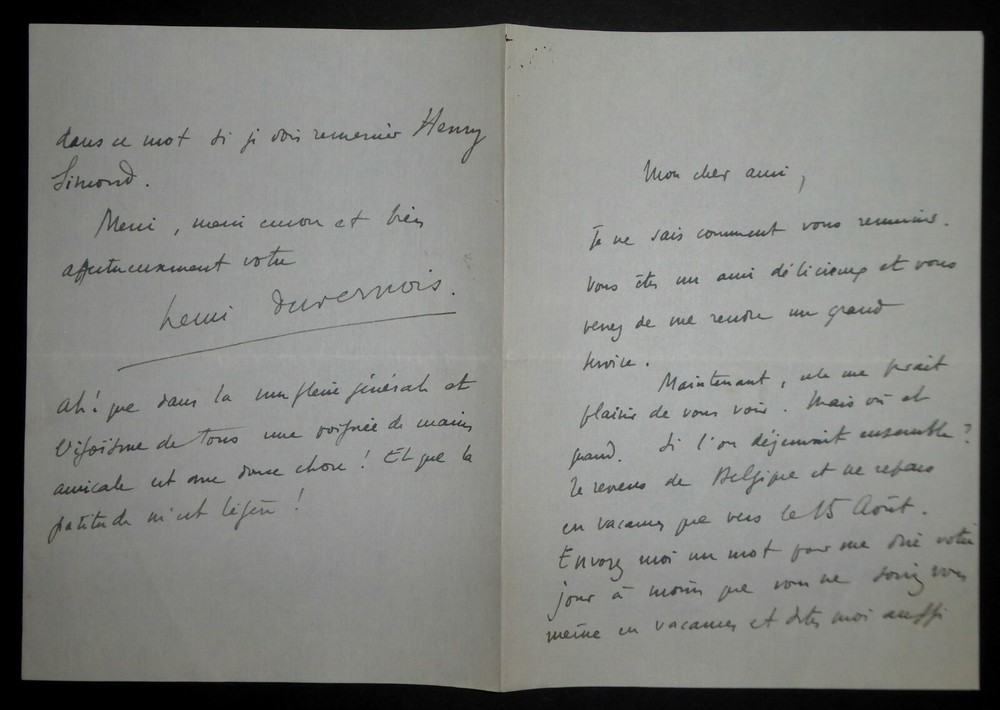 Mon cher ami,
Je ne sais comment vous remercier.
Vous êtes un ami délicieux et vous
venez de me rendre un grand
service.
Maintenant, cela me ferait
plaisir de vous voir. Mais où et
quand. Si l'on déjeunait ensemble?
Je reviens de Belgique et ne repars
en vacances que vers le 15 Août.
Envoyez moi un mot pour me dire votre
jour à moins que vous ne soyiez vous
même en vacances et dites moi aussi
dans ce mot si je dois remercier Henry
Simond.
Merci, merci encore et bien
affectueusement votre
Henri Duvernois.
Ah! que dans la muflerie générale et
l'égoïsme de tous une poignée de mains
amicale est une douce chose! Et que la
gratitude m'est légère!